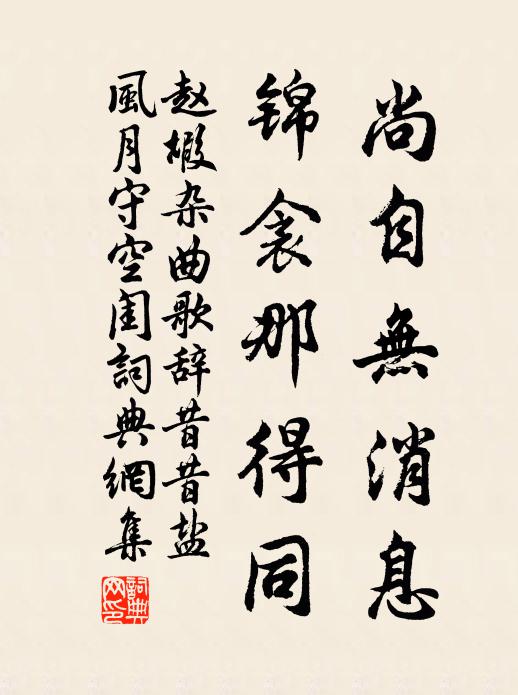 尚自無消息
錦衾那得同
赵嘏杂曲歌辞昔昔盐
風月守空闺詞典網集
詞典网印